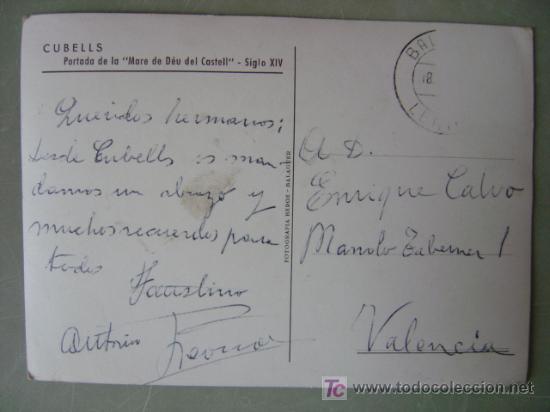 CUBELLS
Portada de la "Mare de Déu del Castell" - Siglo XIV
Queridos hermanos;
desde Cubells os man-
damos un abrazo y
muchos recuerdos para
todos
Faustino
Antonio
FOTOGRAFIA HEROE - BALAGUER
A D.
Enrique Calvo
Manolo Taberner 1
Valencia
todocoleccion